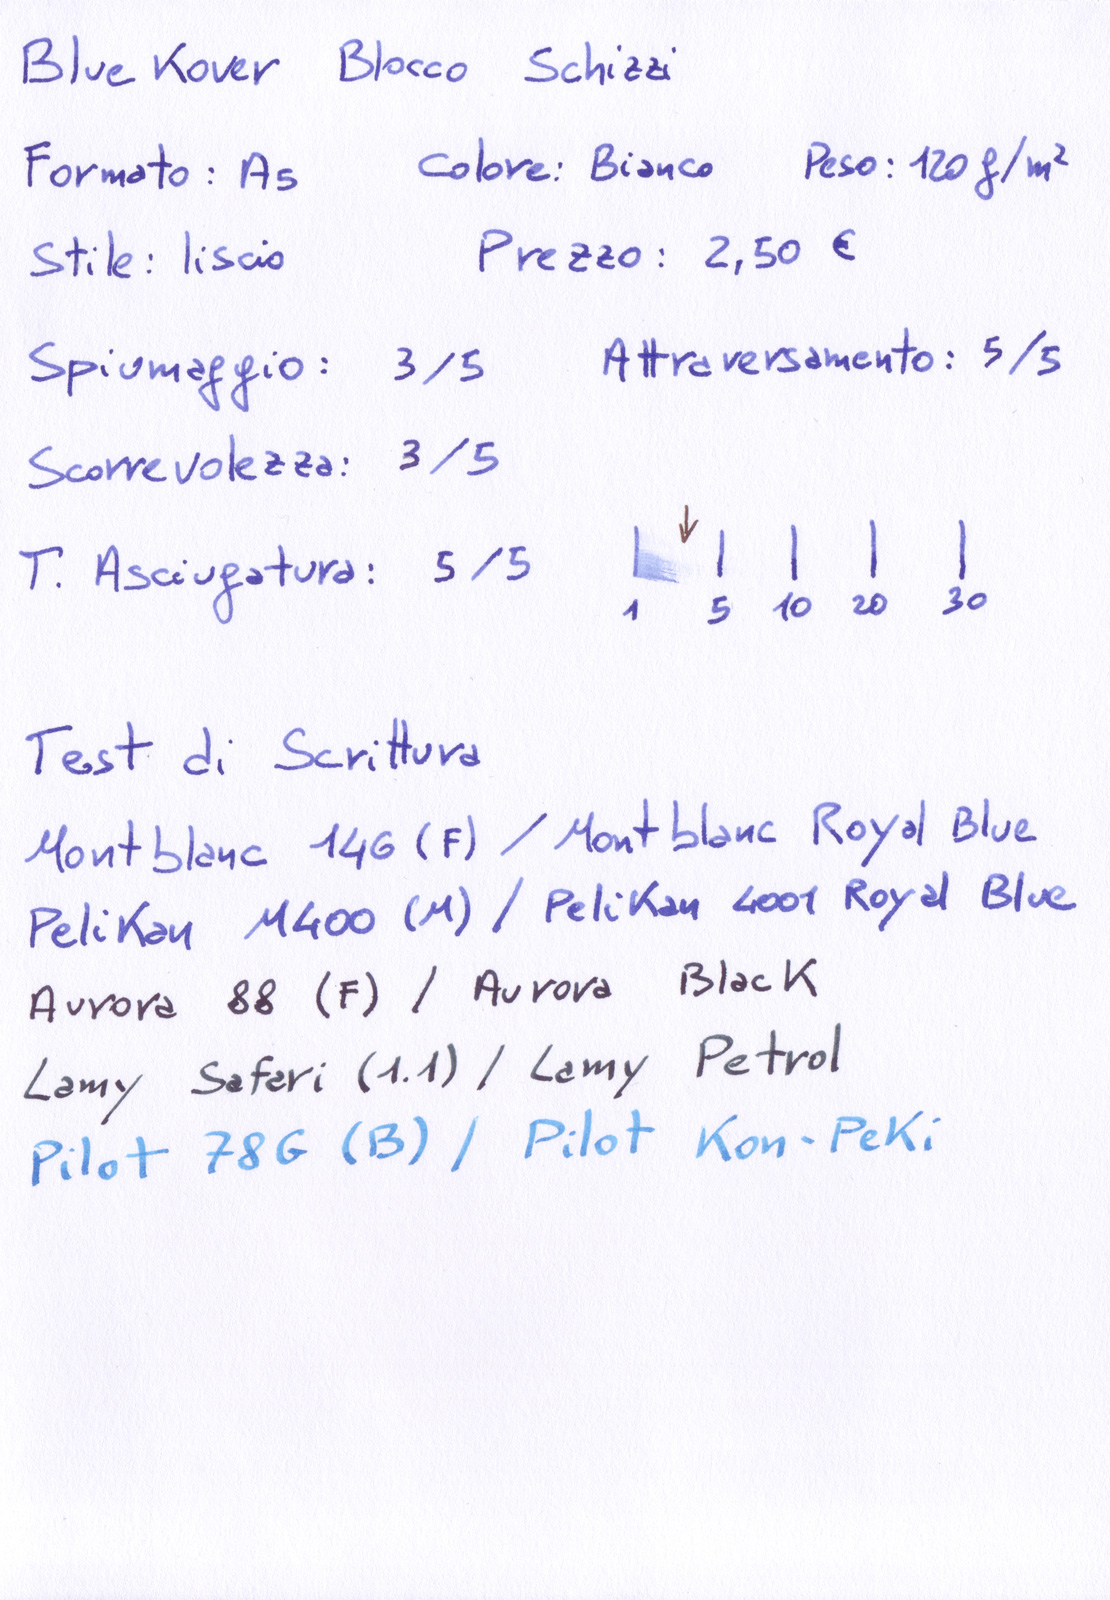 Blue Kover Blocco Schizzi
Formato: A5 Colore: Bianco Peso: 120 g/m²
Stile: liscio Prezzo: 2,50 €
Spiumaggio: 3/5 Attraversamento: 5/5
Scorrevolezza: 3/5
T. Asciugatura: 5/5
1 5 10 20 30
Test di Scrittura
Montblanc 146 (F) / Montblanc Royal Blue
Pelikan M400 (M) / Pelikan 4001 Royal Blue
Aurora 88 (F) / Aurora Black
Lamy Safari (1.1) / Lamy Petrol
Pilot 78G (B) / Pilot Kon-Peki